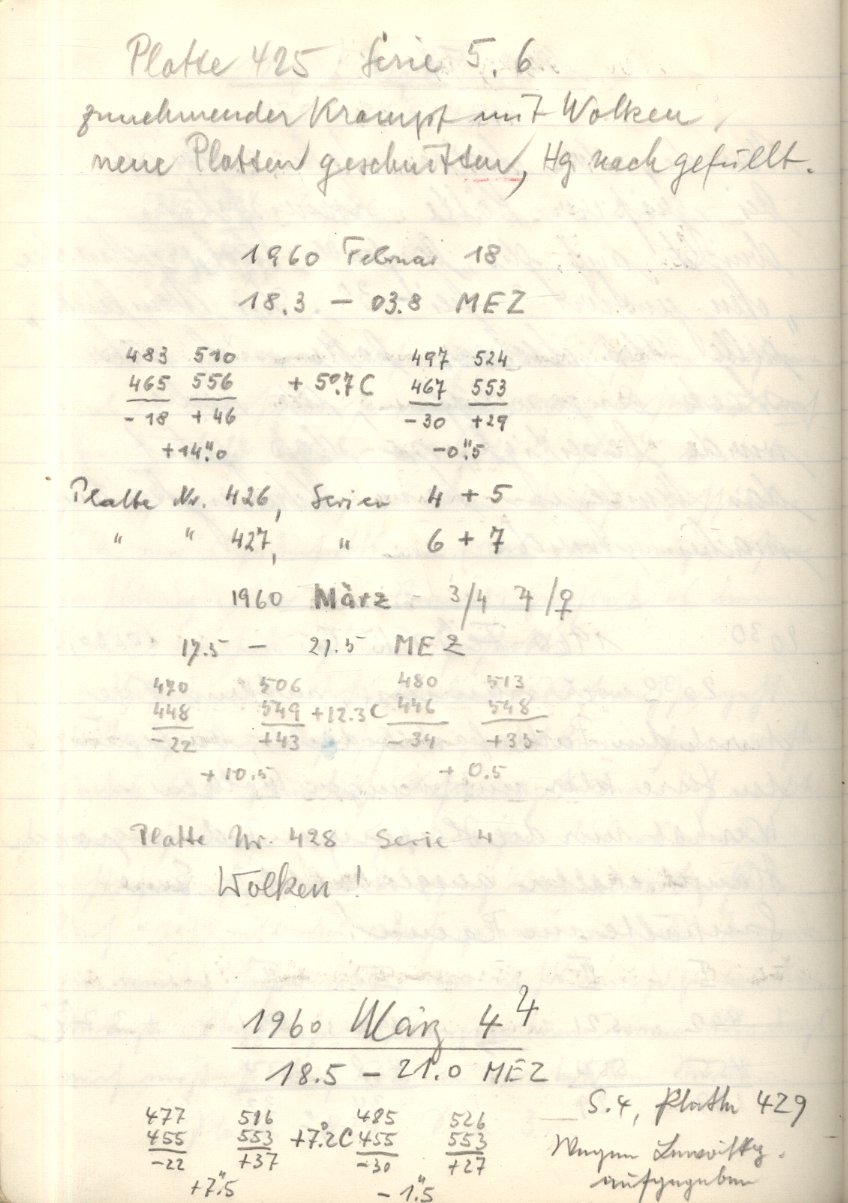 Platte 425 Serie 5, 6
zunehmender Krampf mit Wolken,
neue Platten geschnitten, Hg nachgefüllt.
1960 Februar 18
18.3 – 03.8 MEZ
483 510 497 524
465 556 + 5°.7 C 467 553
- 18 + 46 - 30 + 29
+14".0 -0".5
Platte Nr. 426, Serien 4 + 5
" " 427, " 6 + 7
1960 März 3/4 ♃/♀
17.5 – 21.5 MEZ
470 506 480 513
448 549 +12.3 C 446 548
-22 +43 -34 +35
+ 10.5 + 0.5
Platte Nr. 428 Serie 4
Wolken!
1960 März 4 ♃
18.5 – 21.0 MEZ
S. 4, Platte 429
477 516 485 526
455 553 +7°.2 C 455 553
-22 +37 -30 +27
+7".5 - 1".5
Wegen
aufgegeben